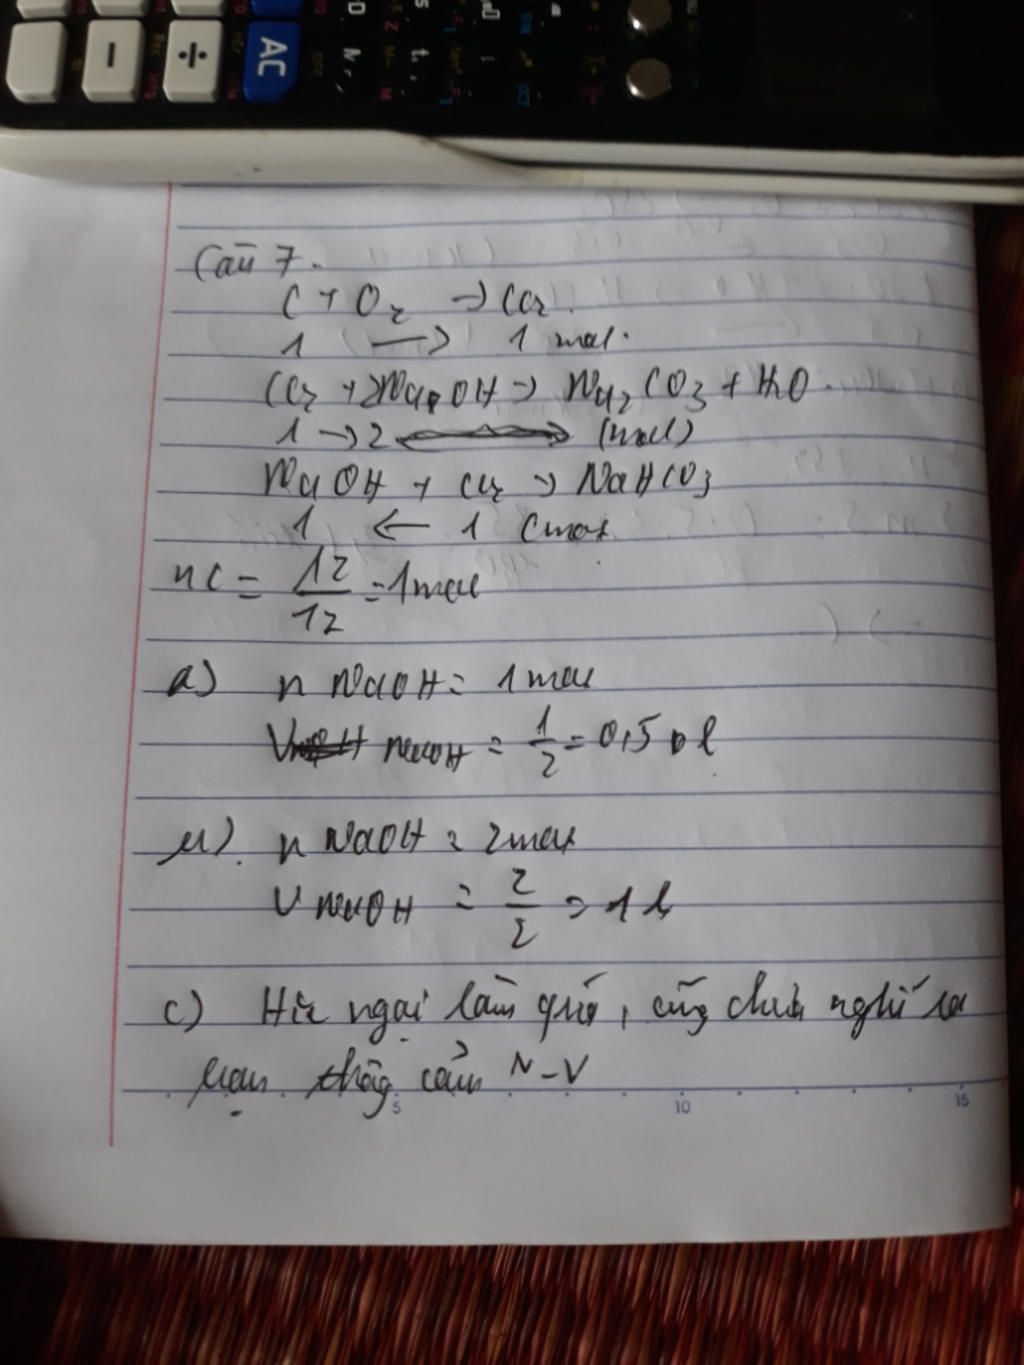 AC
Câu 7.
C + O2 → CO2.
1 → 1 mol.
CO2 + 2NaOH → Na2CO3 + H2O
1 → 2 (mol)
NaOH + CO2 → NaHCO3
1 ← 1 (mol
nC = 12/12 = 1 mol
a) n NaOH = 1 mol
V NaOH = 1/2 = 0,5 l
b). n NaOH = 2 mol
V NaOH = 2/2 = 1 l
c) Hic ngại làm quá, cũng chưa nghĩ ra
bạn thông cảm N-V
5 10 15